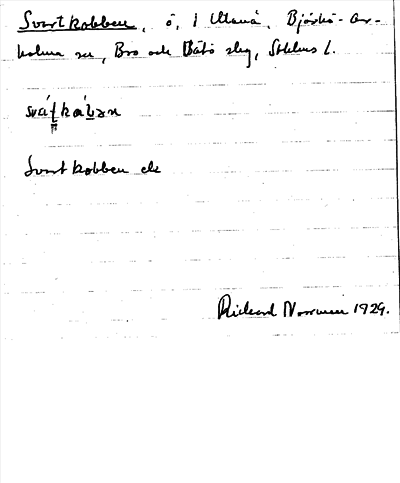 Svartkobben, ö, i Utanå, Björkö-Ar-
holma sn, Bro och Vätö skg, Sthlms l.
sváʈkåb̲ən
Svartkobben ek
Rickard Norrmen 1929.